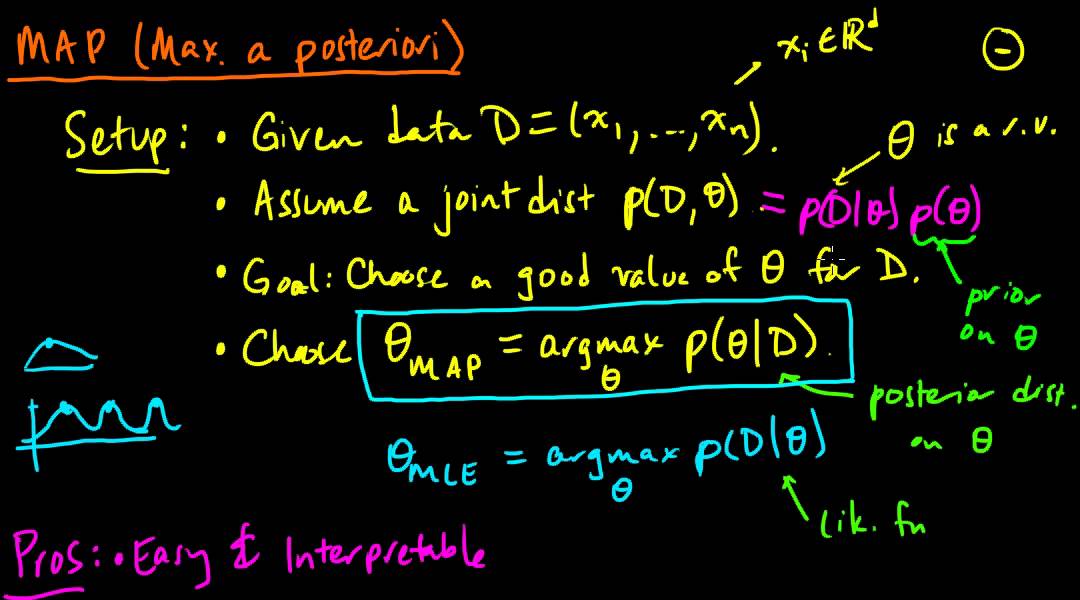 MAP (Max. a posteriori)
xᵢ ∈ ℝᵈ
⊖
Setup: • Given data D = (x₁, ..., xₙ).
θ is a r.v.
• Assume a joint dist p(D, θ). = p(D|θ) p(θ)
• Goal: Choose a good value of θ for D.
prior
on θ
• Choose θ_MAP = argmax p(θ|D).
θ
posterior dist.
on θ
θ_MLE = argmax p(D|θ)
θ
lik. fn
Pros: • Easy & Interpretable